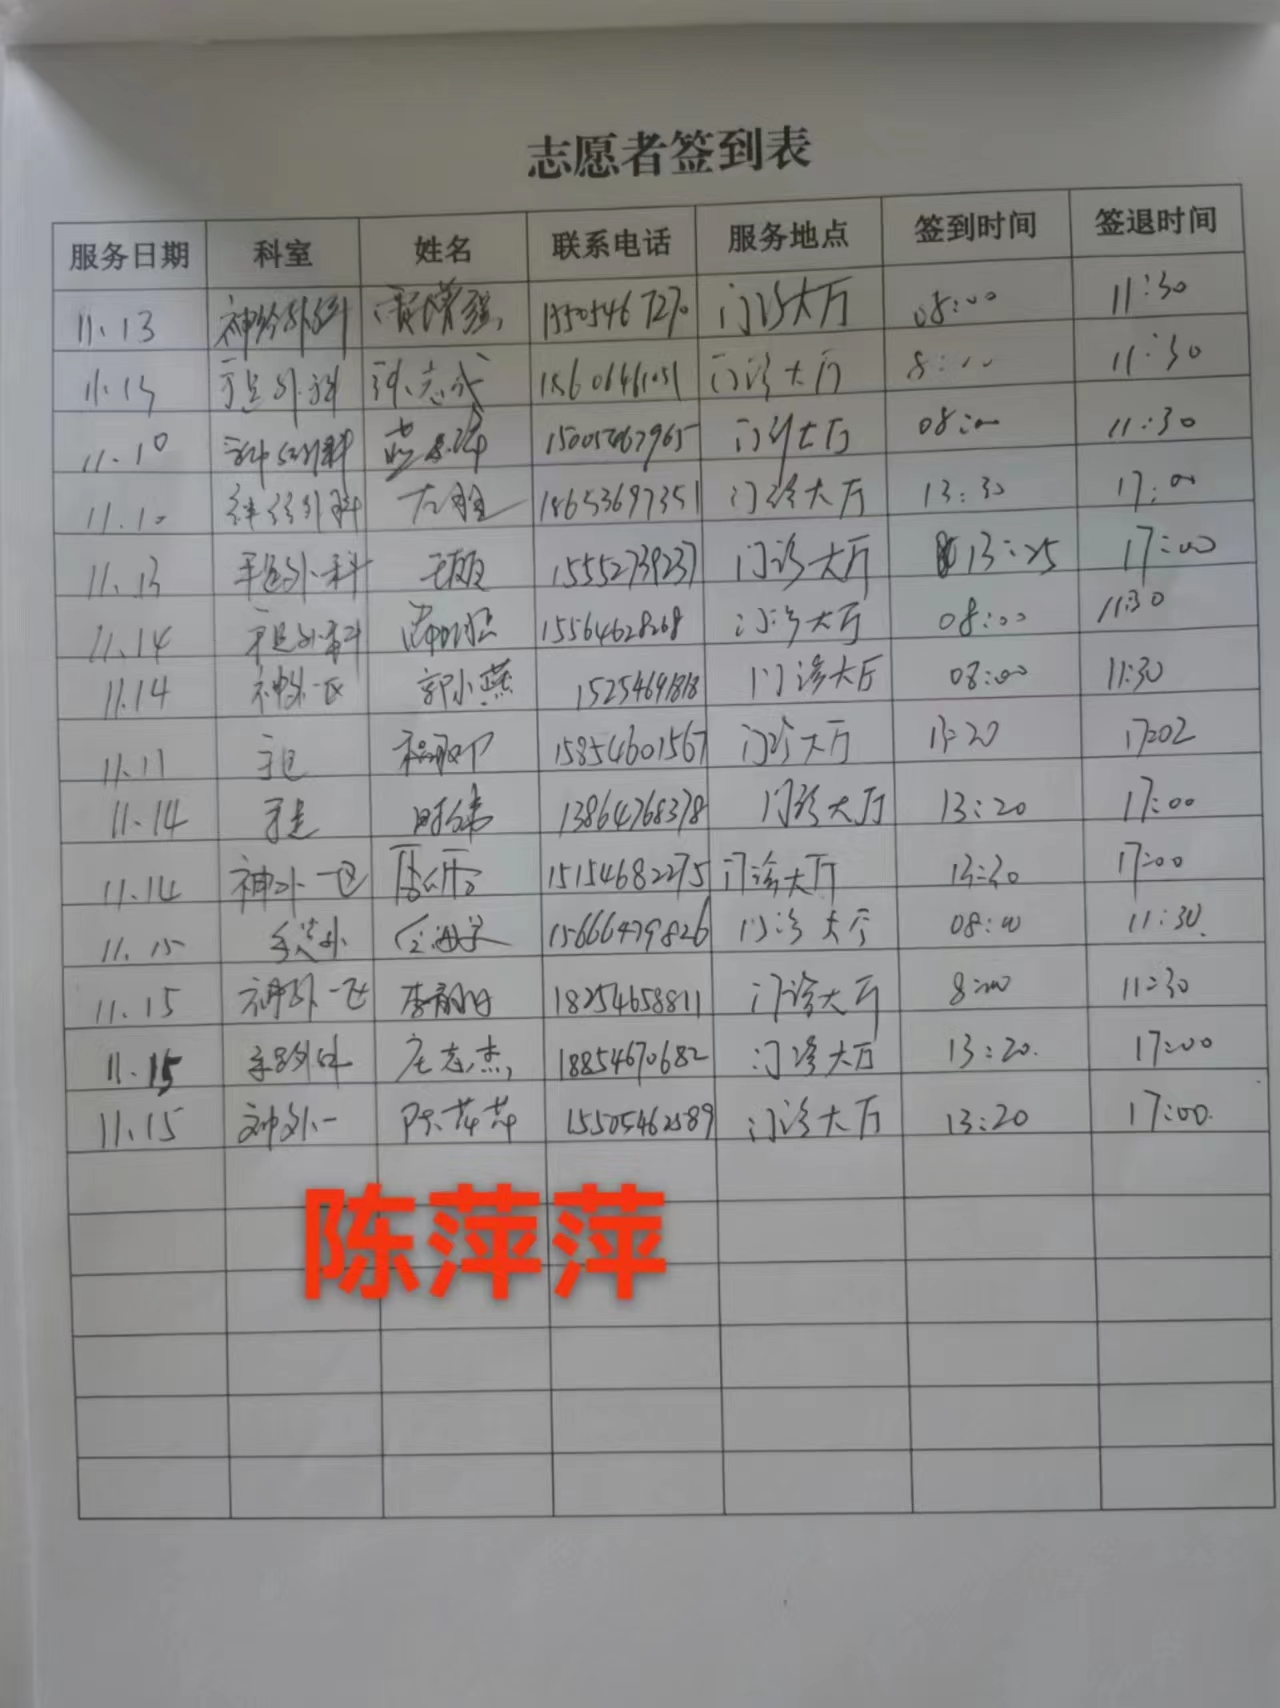 志愿者签到表
服务日期 科室 姓名 联系电话 服务地点 签到时间 签退时间
11.13 神经外科 15505467270 门诊大厅 08:00 11:30
11.13 手足外科 志 门诊大厅 8:00 11:30
11.10 神经外科 15005467965 门诊大厅 08:00 11:30
11.10 神经外科 18653697351 门诊大厅 13:30 17:00
11.13 手足外科 15552739237 门诊大厅 13:25 17:00
11.14 手足外科 15564628268 门诊大厅 08:00 11:30
11.14 神外一区 郭小燕 15254691818 门诊大厅 08:00 11:30
11.11 手足 15854601567 门诊大厅 13:20 17:02
11.14 手足 时伟 13864768378 门诊大厅 13:20 17:00
11.14 神外一区 15154682275 门诊大厅 13:30 17:00
11.15 外 15666479826 门诊大厅 08:00 11:30
11.15 神外一区 李 18254658811 门诊大厅 8:00 11:30
11.15 庄志杰 18854670682 门诊大厅 13:20 17:00
11.15 神外一 陈萍萍 15505462589 门诊大厅 13:20 17:00
陈萍萍